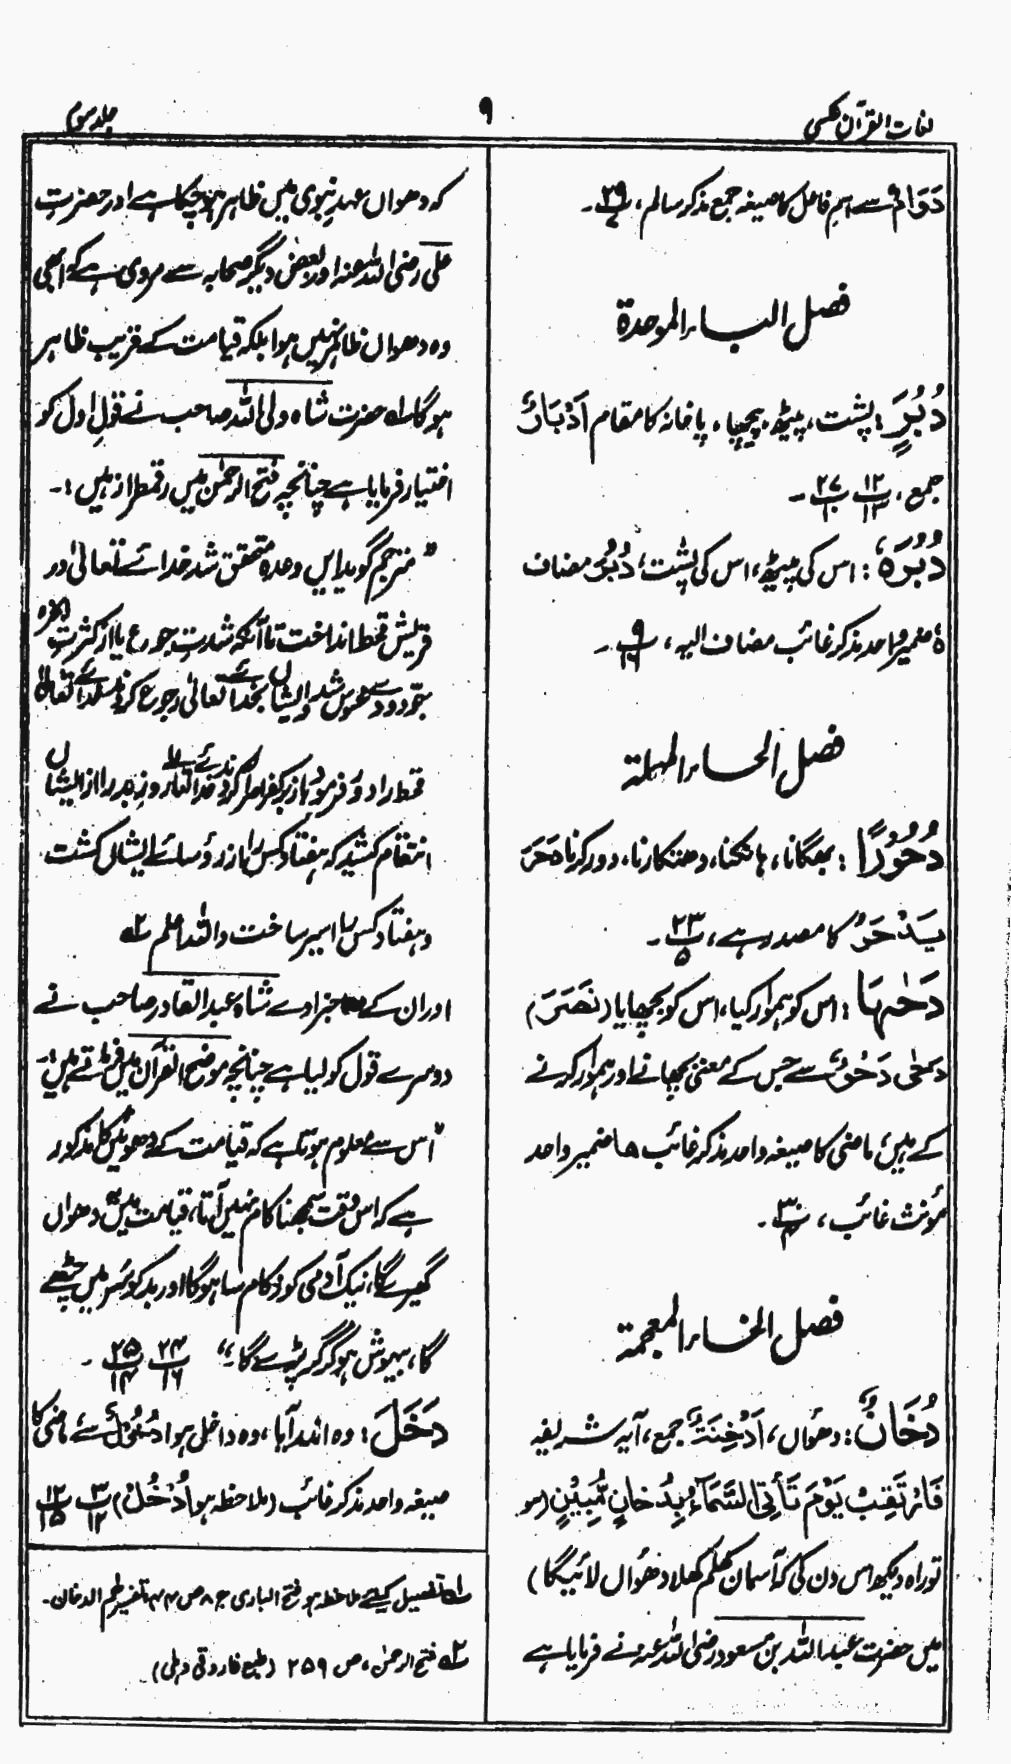 لغات القرآن عکسی
۹
جلد سوم
دَوَامٌ سے اسم فاعل کا صیغہ جمع مذکر سالم، پ ۲۹ ۔
فصل الباء الموحدة
دُبُرٍ: پشت، پیٹھ، پیچھا، پاخانہ کا مقام اَدْبَارٌ
جمع، پ ۱۲ ۱۳ پ ۲۷ ۱۰ ۔
دُبُرَہٗ: اس کی پیٹھ، اس کی پشت، دُبُرَ مضاف
ہٗ ضمیر واحد مذکر غائب مضاف الیہ، پ ۹ ۱۶ ۔
فصل الحاء المهملة
دُحُوْرًا: بھگانا، ہانکنا، دھتکارنا، دور کرنا دَحَرَ
یَدْحَرُ کا مصدر ہے، پ ۲۳ ۵ ۔
دَحٰہَا: اس کو ہموار کیا، اس کو بچھایا (نَصَرَ)
دَحٰی دَحْوٌ سے جس کے معنی بچھانے اور ہموار کرنے
کے ہیں، ماضی کا صیغہ واحد مذکر غائب ھا ضمیر واحد
مؤنث غائب، پ ۳۰ ۔
فصل الخاء المعجمة
دُخَانٌ: دھواں، اَدْخِنَةٌ جمع، آیہ شریفہ
فَارْتَقِبْ یَوْمَ تَأْتِی السَّمَآءُ بِدُخَانٍ مُّبِیْنٍ (سو
تو راہ دیکھ اس دن کی کہ آسمان کھلم کھلا دھواں لائیگا)
میں حضرت عبداللہ بن مسعود رضی اللہ عنہ نے فرمایا ہے
کہ دھواں عہد نبوی میں ظاہر ہو چکا ہے اور حضرت
علی رضی اللہ عنہ اور بعض دیگر صحابہ سے مروی ہے کہ ابھی
وہ دھواں ظاہر نہیں ہوا بلکہ قیامت کے قریب ظاہر
ہوگا لہ حضرت شاہ ولی اللہ صاحب نے قول اول کو
اختیار فرمایا ہے چنانچہ فتح الرحمٰن میں رقمطراز ہیں:۔
"مترجم گوید ایں وعدہ متحقق شد خدائے تعالیٰ در
قریش قحط انداخت تا آنکہ شدت جوع یا از کثرت ابخرہ
جو دود محسوس شد و ایشاں بخدائے تعالیٰ رجوع کردند خدائے تعالیٰ
قحط را دور فرمود باز بکفر اصرار کردند خدائے تعالیٰ روز بدر ازایشاں
انتقام کشید کہ ہفتاد کس را از رؤسائے ایشاں کشت
و ہفتاد کس را اسیر ساخت واللہ اعلم ۲ہ
اور ان کے صاحبزادے شاہ عبدالقادر صاحب نے
دوسرے قول کو لیا ہے چنانچہ موضح القرآن میں فرماتے ہیں:۔
"اس سے معلوم ہوتا ہے کہ قیامت کے دھوئیں کا مذکور
ہے کہ اس وقت سمجھنا کام نہیں آتا، قیامت میں دھواں
گھیرے گا، نیک آدمی کو زکام سا ہوگا اور بد کو سر میں چڑھے
گا، بیہوش ہو کر گر پڑے گا۔" پ ۲۴ ۱۶ پ ۲۵ ۱۴ ۔
دَخَلَ: وہ اندر آیا، وہ داخل ہوا دُخُوْلٌ سے ماضی کا
صیغہ واحد مذکر غائب (ملاحظہ ہو اُدْخُلْ) پ ۳ ۱۲ پ ۱۲ ۱۵
لہ تفصیل کیلئے ملاحظہ ہو فتح الباری ج ۸ ص ۴۴۰ تفسیر حم الدخان۔
۲ہ فتح الرحمٰن، ص ۲۵۹ (طبع فاروقی دہلی)